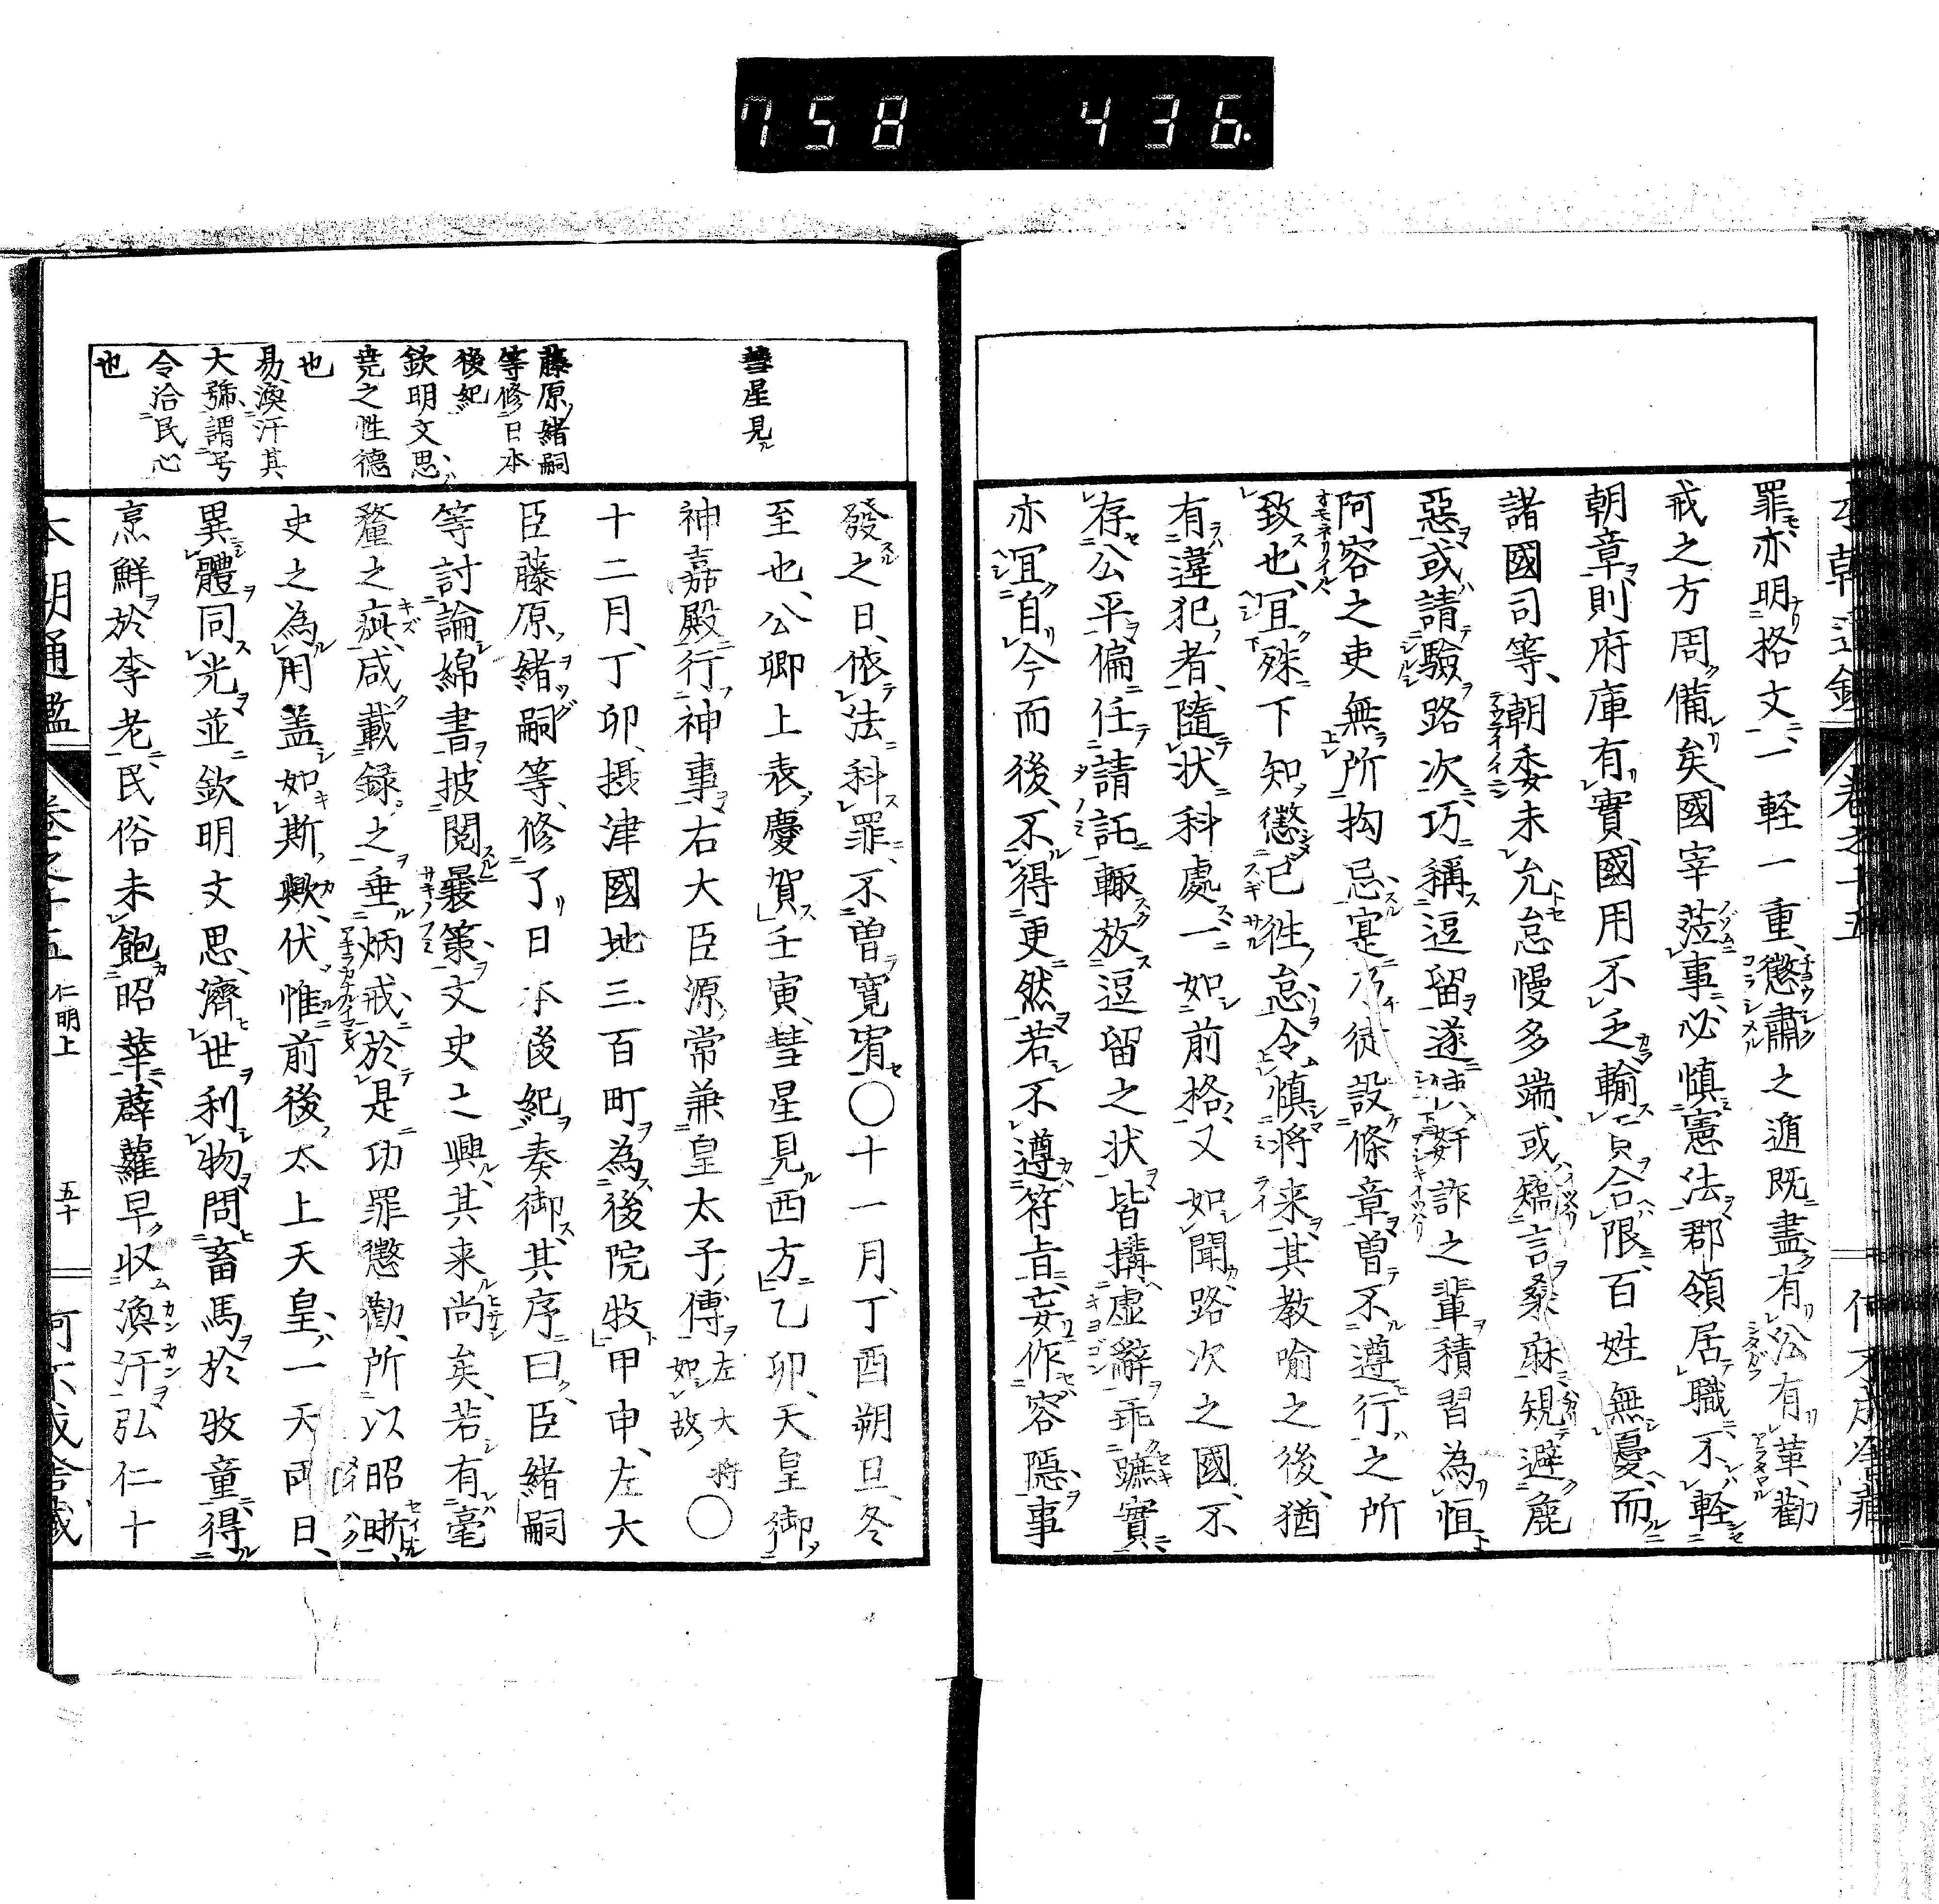 758 436.
罪亦明格文一軽一重懲肅之道既盡有沿有革勸
戒之方周備矣國宰莅事必慎憲法郡領居職不軽
朝章則府庫有實國用不乏輸貢合限百姓無憂而
諸國司等朝委未允怠慢多端或矯言桑麻規避麁
惡或請驗路次巧稱逗留遂使姧詐之輩積習為恒
阿容之吏無所拘忌寔乃徒設條章曽不遵行之所
致也冝殊下知懲已徃怠令慎将来其教喻之後猶
有違犯者隨状科處一如前格又如聞路次之國不
存公平偏任請託輙放逗留之状皆搆虚辭乖蹠實
亦冝自今而後不得更然若不遵符旨妄作容隠事
彗星見
藤原緒嗣
等修日本
後紀
欽明文思
堯之性德
也
易渙汗其
大號謂号
令洽民心
也
發之日依法科罪不曽寛宥○十一月丁酉朔旦冬
至也公卿上表慶賀壬寅彗星見西方乙卯天皇御
神嘉殿行神事右大臣源常兼皇太子傳左大将如故○
十二月丁卯摂津國地三百町為後院牧甲申左大
臣藤原緒嗣等修了日本後紀奏御其序曰臣緒嗣
等討論綿書披閲曩策文史之興其来尚矣若有毫
釐之疵咸載録之垂炳戒於是功罪懲勸所以昭晣
史之為用盖如斯歟伏惟前後太上天皇一天両日
異體同光並欽明文思濟世利物問畜馬於牧童得
烹鮮於李老民俗未飽昭華薜蘿早収渙汗弘仁十
本朝通鑑 卷之十五 仁明上 五十